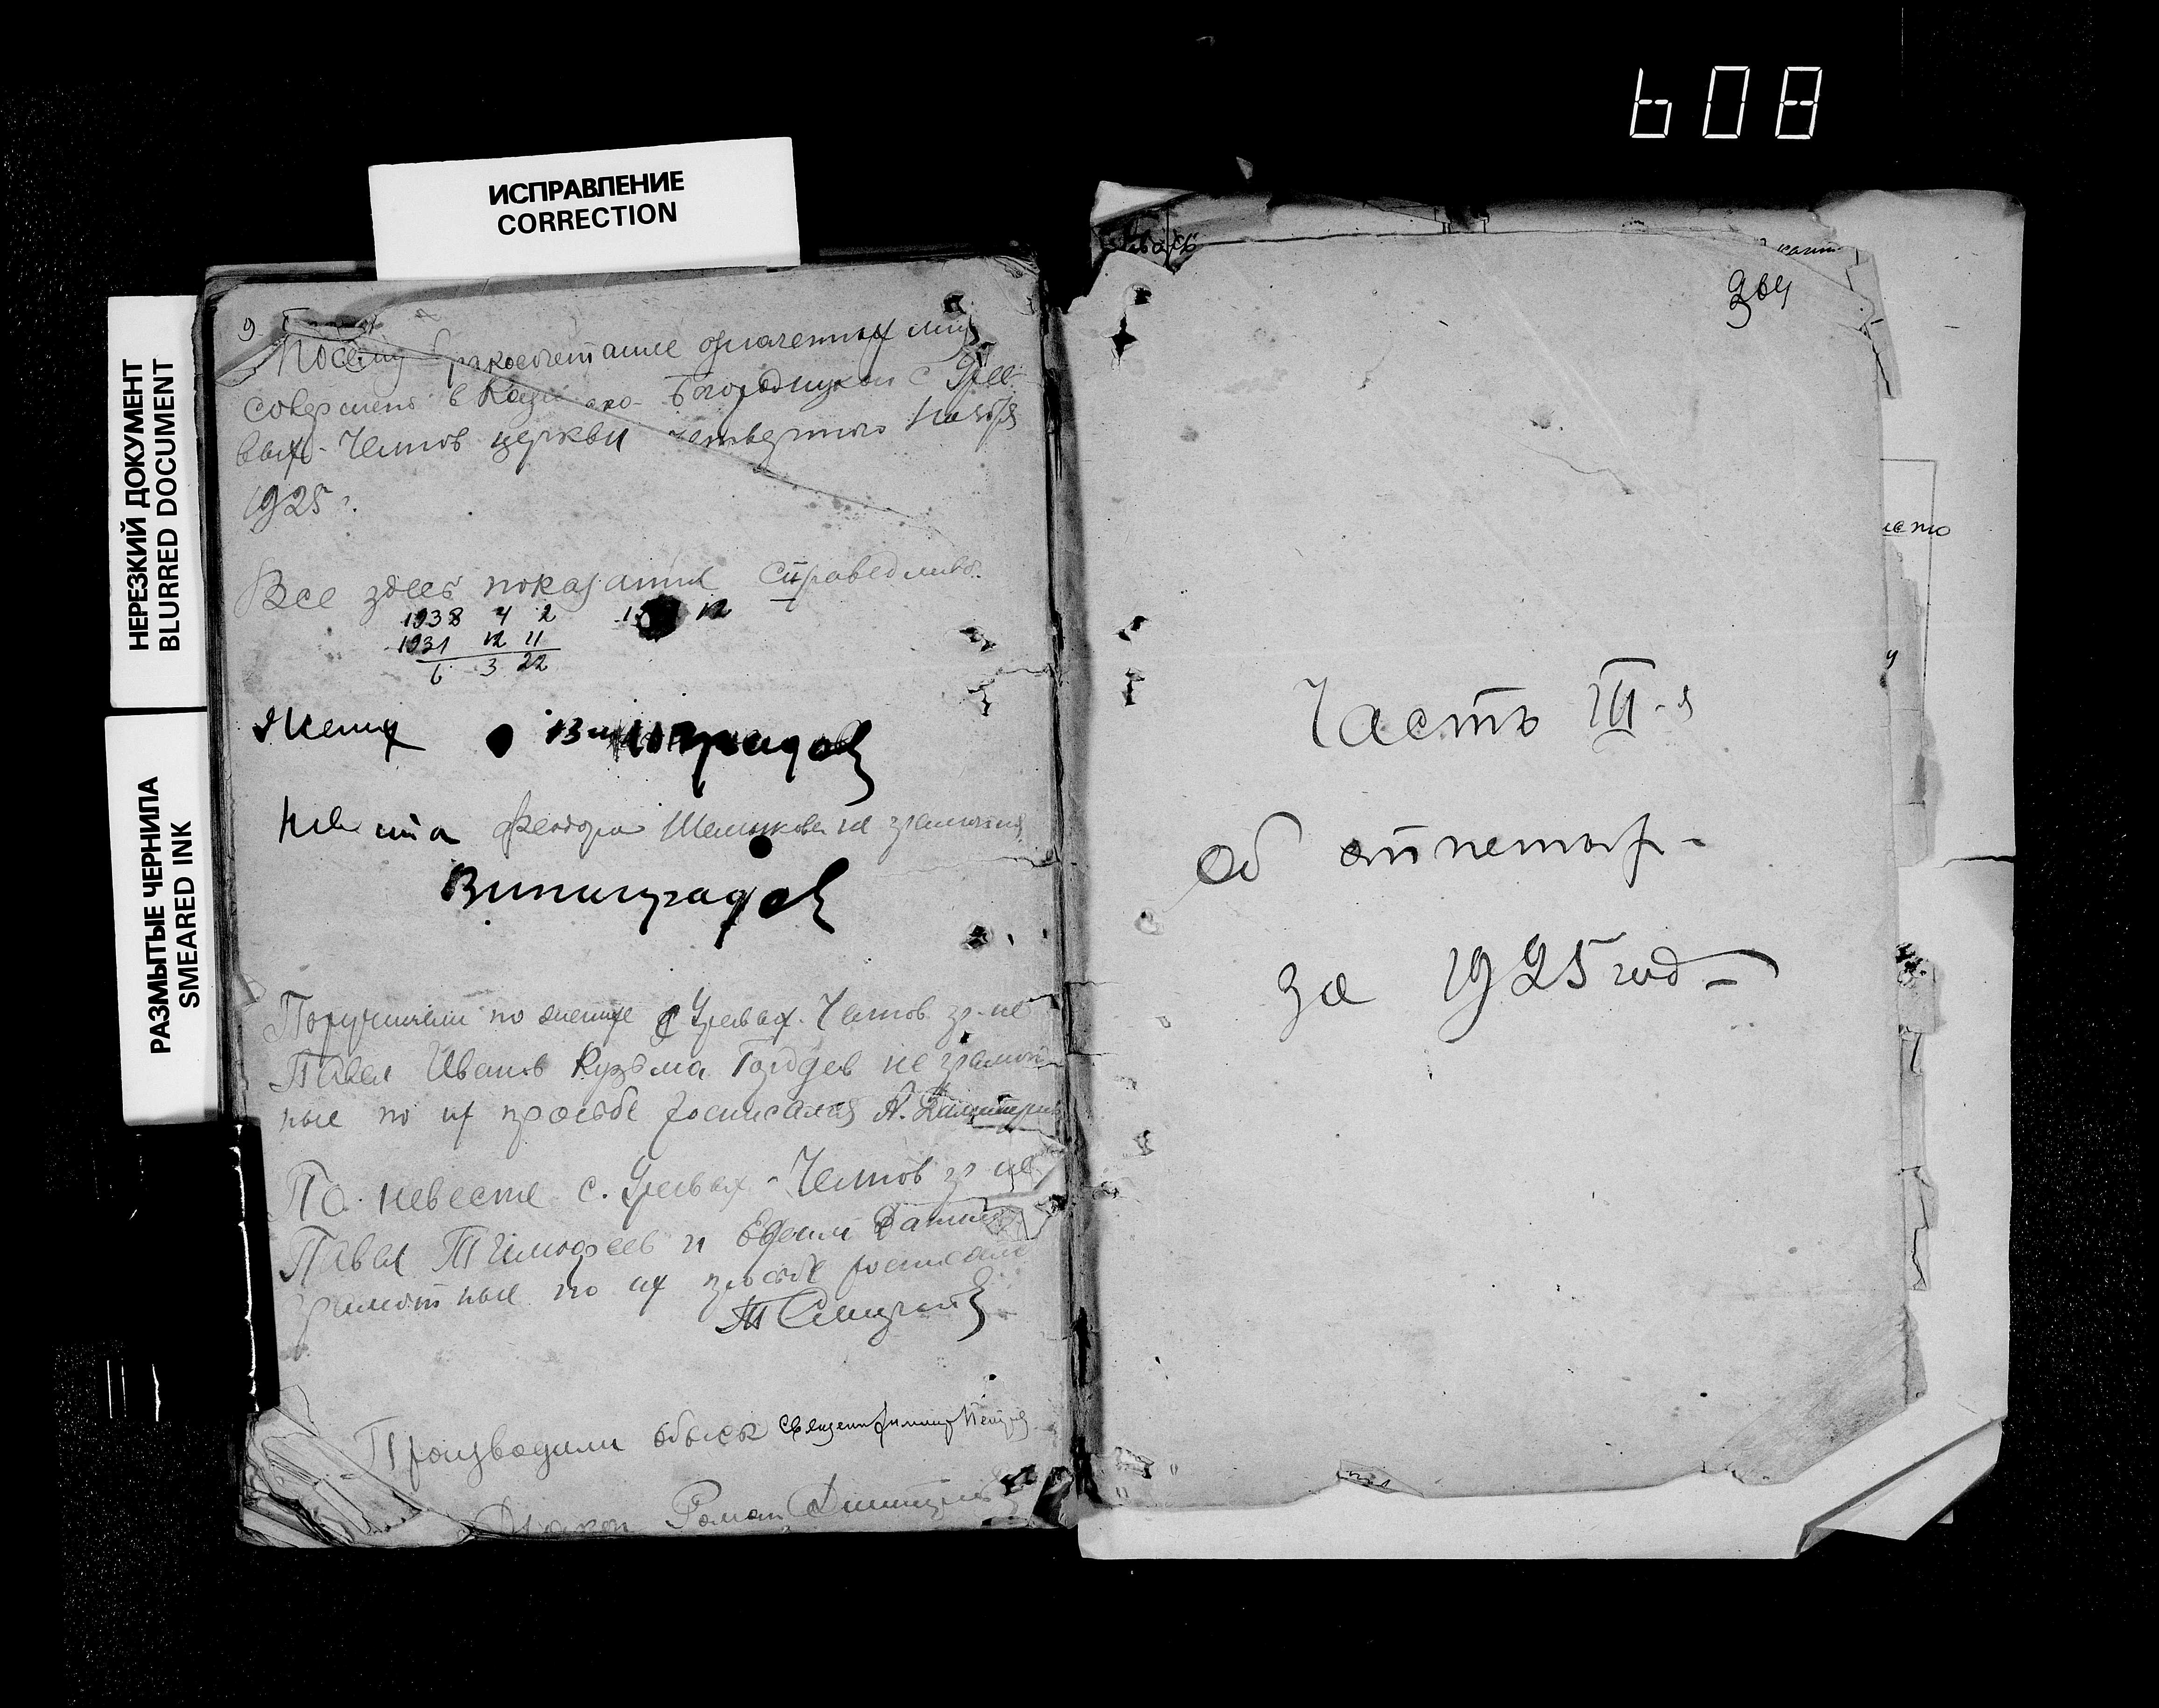 608
ИСПРАВЛЕНИЕ
CORRECTION
НЕРЕЗКИЙ ДОКУМЕНТ
BLURRED DOCUMENT
РАЗМЫТЫЕ ЧЕРНИЛА
SMEARED INK
9
Посему бракосочетание означенных лиц
совершено в Казанско-Богородицкой с Уре
вых-Челнов церкви четвертого Ноября
1925 г.
Все здесь показания справедливо.
1938 4 2
1931 12 11
6 3 22
12
Жених Виноградов
Невеста Феодора не грамотная
Виноградов
Поручители по женихе с Уревых-Челнов гр-не
Павел Иванов Кузьма Гордеев не грамот
ные по их просьбе росписался А. Димитриев
По невесте с. Уревых-Челнов гр не
Павел Тимофеев и Ефим
грамотные по их просьбе росписался
Производили обыск
Диакон Роман Димитриев
364
Часть III-я
об отпетых-
за 1925 год-